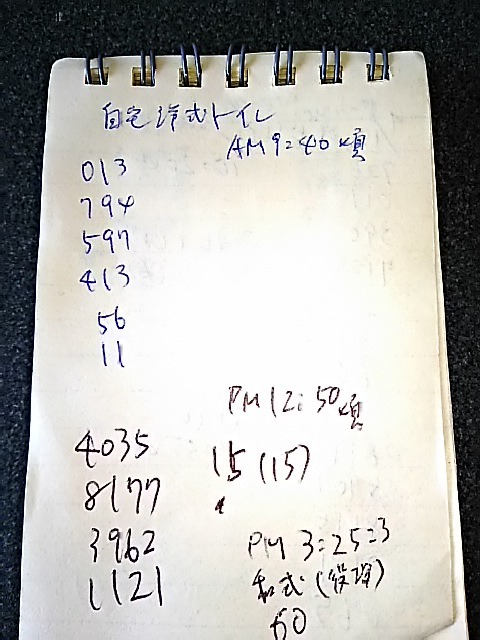 自宅洋式トイレ
AM9:40頃
013
794
597
413
56
11
PM12:50頃
4035
15(15)
8177
3962
PM 3:25:3
1121
和式(役場)
60